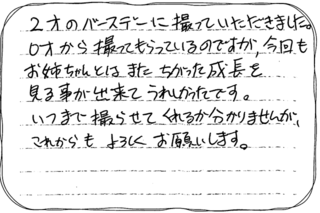 2才のバースデーに撮っていただきました。
0才から撮ってもらっているのですが、今回も
お姉ちゃんとはまたちがった成長を
見る事が出来てうれしかったです。
いつまで撮らせてくれるか分かりませんが、
これからもよろしくお願いします。